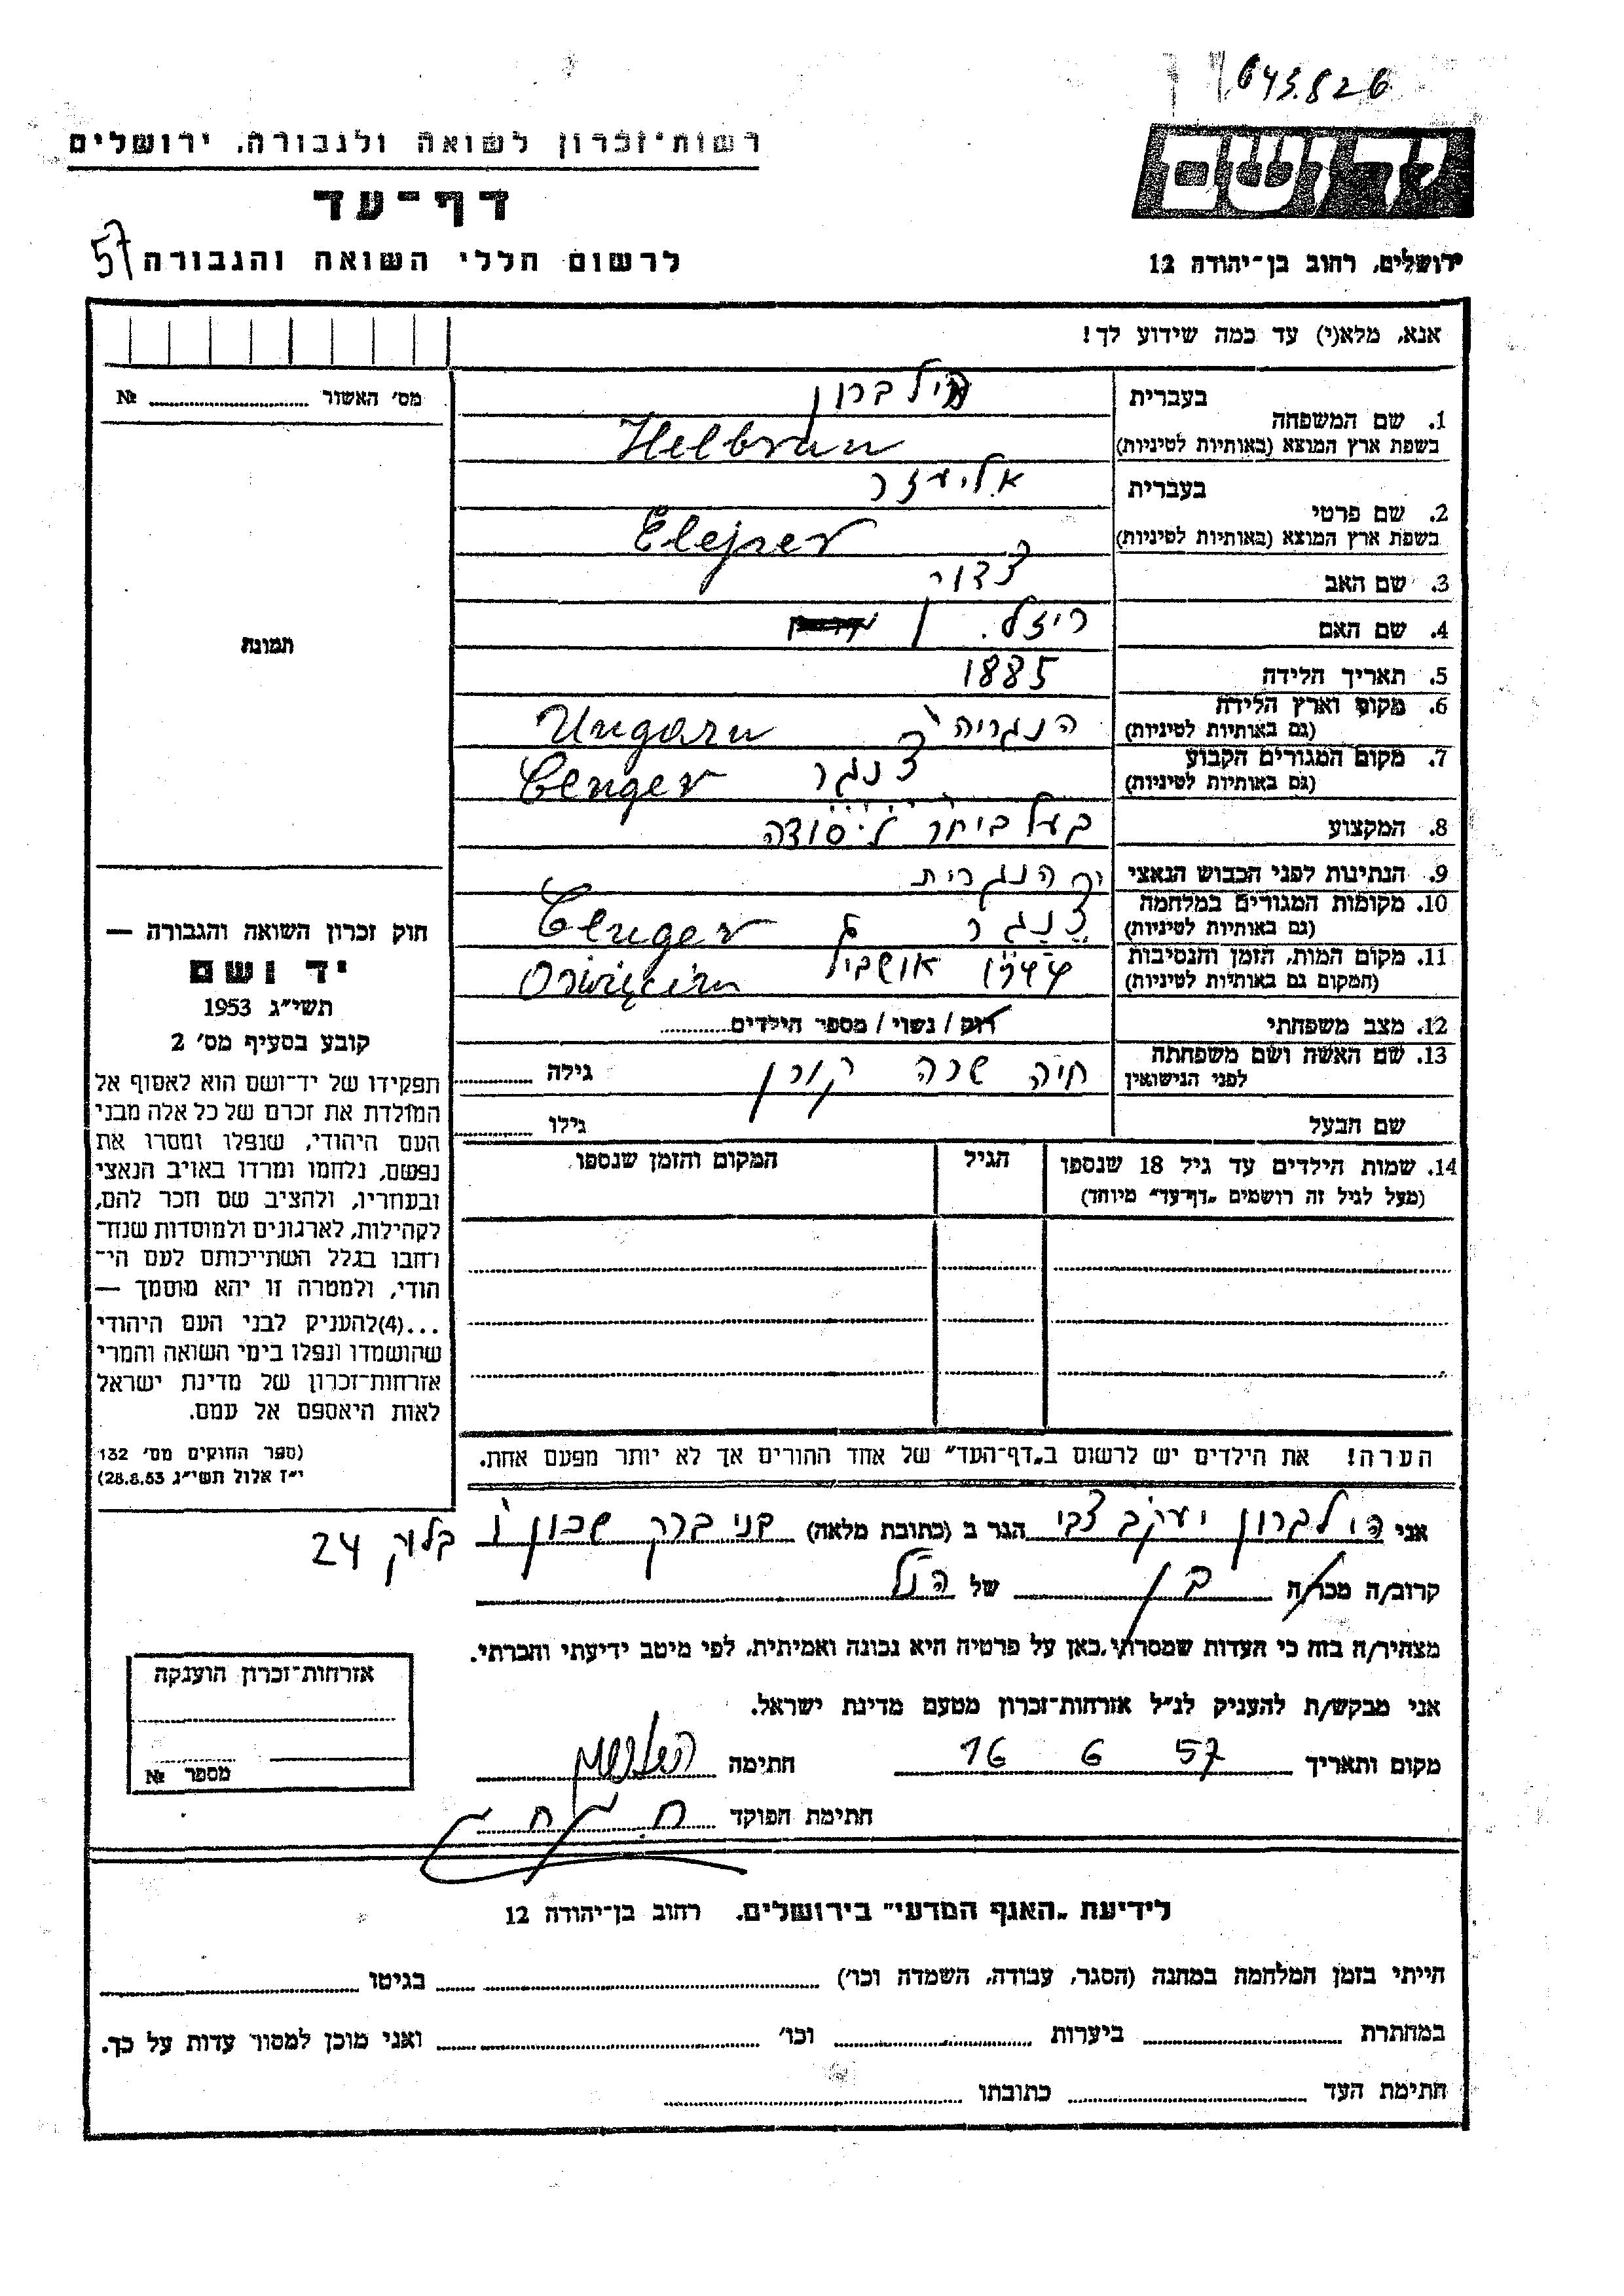 643.826
רשות־זכרון לשואה ולגבורה. ירושלים
דף־עד
לרשום חללי השואה והגבורה
57
ירושלים, רחוב בן־יהודה 12
אנא, מלא(י) עד כמה שידוע לך!
מס׳ האשור № 
תמונה
1. שם המשפחה
בעברית
הילברון
בשפת ארץ המוצא (באותיות לטיניות)
Helbrun
2. שם פרטי
בעברית
אליעזר
בשפת ארץ המוצא (באותיות לטיניות)
Elejser
3. שם האב
4. שם האם ריזל.
5. תאריך הלידה 1885
6. מקום וארץ הלידה (גם באותיות לטיניות) הנגריה Ungarn
7. מקום המגורים הקבוע (גם באותיות לטיניות) צנגר Cenger
8. המקצוע בעל לסודה
9. הנתינות לפני הכבוש הנאצי הנגרית
10. מקומות המגורים במלחמה (גם באותיות לטיניות) צנגר Cenger
11. מקום המות, הזמן והנסיבות (המקום גם באותיות לטיניות)
12. מצב משפחתי רוק / נשוי / מספר הילדים
13. שם האשה ושם משפחתה לפני הנישואין חיה שרה קורן גילה
שם הבעל גילו
14. שמות הילדים עד גיל 18 שנספו (מעל לגיל זה רושמים „דף־עד״ מיוחד)
הגיל
המקום והזמן שנספו
חוק זכרון השואה והגבורה —
יד ושם
תשי״ג 1953
קובע בסעיף מס׳ 2
תפקידו של יד־ושם הוא לאסוף אל
המולדת את זכרם של כל אלה מבני
העם היהודי, שנפלו ומסרו את
נפשם, נלחמו ומרדו באויב הנאצי
ובעוזריו, ולהציב שם וזכר להם,
לקהילות, לארגונים ולמוסדות שנח־
רחבו בגלל השתייכותם לעם הי־
הודי, ולמטרה זו יהא מוסמך —
...(4)להעניק לבני העם היהודי
שהושמדו ונפלו בימי השואה והמרי
אזרחות־זכרון של מדינת ישראל
לאות היאספם אל עמם.
(ספר החוקים מס׳ 132
י״ז אלול תשי״ג 28.8.53)
הערה! את הילדים יש לרשום ב„דף־העד״ של אחד ההורים אך לא יותר מפעם אחת.
אני הילברון יעקב צבי הגר ב (כתובת מלאה) בני ברק שכון ו בלוק 24
קרוב/ה מכר/ה בן של הנ״ל
מצהיר/ה בזה כי העדות שמסרתי כאן על פרטיה היא נכונה ואמיתית, לפי מיטב ידיעתי והכרתי.
אני מבקש/ת להעניק לנ״ל אזרחות־זכרון מטעם מדינת ישראל.
מקום ותאריך 57 6 16 חתימה
חתימת הפוקד
אזרחות־זכרון הוענקה
מספר №
לידיעת „האגף המדעי״ בירושלים. רחוב בן־יהודה 12
הייתי בזמן המלחמה במחנה (הסגר, עבודה, השמדה וכו׳) בגיטו
במחתרת ביערות וכו׳ ואני מוכן למסור עדות על כך.
חתימת העד כתובתו